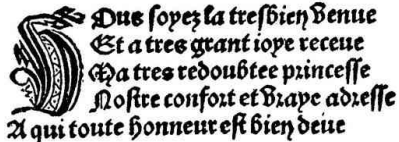 Vous soyez la tresbien venue
Et a tres grant ioye receue
Ma tres redoubtee princesse
Nostre confort et vraye adresse
A qui toute honneur est bien deue